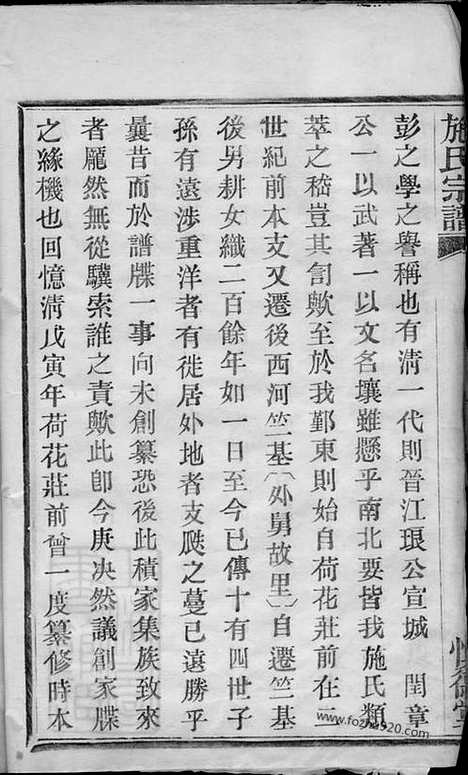 施氏宗譜
彭之學之譽稱也有清一代則晉江琅公宣城 閏章
公一以武著一以文名壤雖懸乎南北要皆我施氏類
萃之嵇豈其訇歟至於我鄞東則始自荷花莊前在二
世紀前本支又遷後西河竺基(外舅故里)自遷竺基
後男耕女織二百餘年如一日至今已傳十有四世子
孫有遠涉重洋者有徙居外地者支瓞之蔓已遠勝乎
曩昔而於譜牒一事向未創纂恐後此積家集族致來
者龎然無從驥索誰之責歟此卽今庚决然議創家牒
之緣機也回憶清戊寅年荷花莊前曾一度纂修時本
www.fozhu920.com